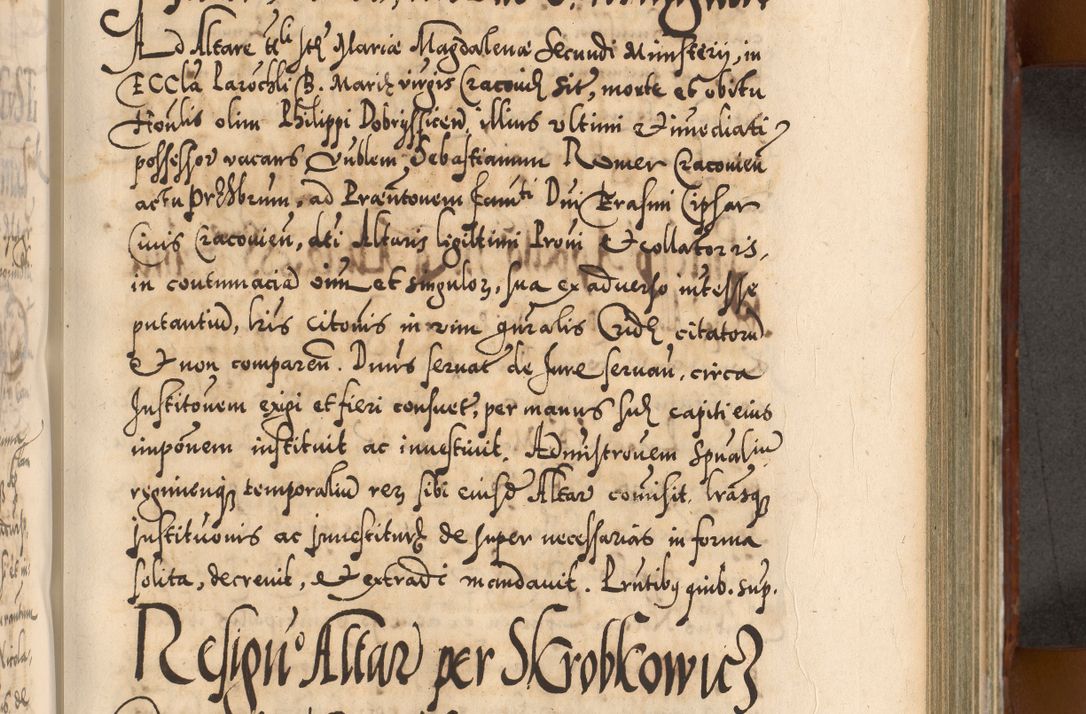 Ad Altare tt͞li sct͞e Mariæ Magdalenæ Secundi Ministerii, in
ECCla Parochli B. Mariæ virgis Cracovien̄ sit, morte et obitu
Honlis olim Philippi Dobrysszicen̄ illius ultimi et immediati
possessor vacans Nublem Sebastianum Romer Cracovien̄
actu Prƺbrum, ad Præntonem famti Dni Erasmi Cipsar
Civis Cracovien̄, dti Altaris ligiltimi Provi Et collatoris,
in contumaciā om̄ et singulorꝫ, sua ex adverso intesse
putantiū, lris citonis in vim gnralis Cridæ citatorū
Et non comparen̄. Dnivs servat de Jure servan, circa
Institōnem exigi et fieri consuet, per manus suæ capiti eius
imponem instituit ac investivit. Administronem Spualiū
regimenqꝫ temporaliū rerꝫ sibi eiusd Altar comisit. lrasqꝫ
institutionis ac Investituræ de super necessarias in forma
solita, decrevit, Et extradi mandavit. Prntibꝫ quib. sup.
Resignᵒ Altar per Skrobkowicz